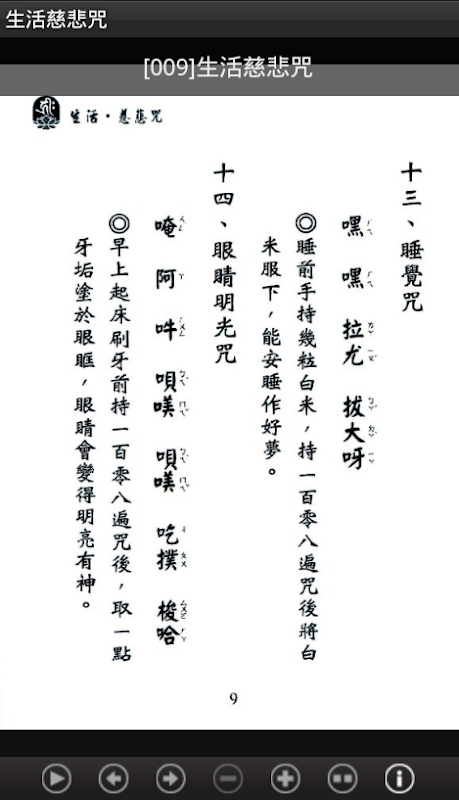 生活慈悲咒
[009]生活慈悲咒
生活・慈悲咒
十三、睡覺咒
嘿 嘿 拉尤 拔大呀
◎睡前手持幾粒白米，持一百零八遍咒後將白
米服下，能安睡作好夢。
十四、眼睛明光咒
唵 阿 吽 唄嘆 唄嘆 吃撲 梭哈
◎早上起床刷牙前持一百零八遍咒後，取一點
牙垢塗於眼眶，眼睛會變得明亮有神。
9